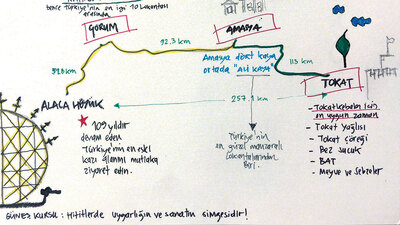 Türkiye'nin en iyi 10 Lokantası
arasında
ÇORUM
AMASYA
92.3 km
113 km
Amasya dört kaya
ortada "Ali Kaya"
TOKAT
ALACA HÖYÜK
257.1 km
109 yıldır
devam eden
Türkiye'nin en eski
kazı alanını mutlaka
ziyaret edin.
Türkiye'nin
en güzel manzaralı
lokantalarından
Biri.
- Tokat kebabı için
en uygun zaman
- Tokat Yağlısı
- Tokat Çöreği
- Bez sucuk
- BAT
- Meyve ve Sebzeler
GÜNEŞ KURSU : HİTİTLERDE uygarlığın ve sanatın simgesidir!